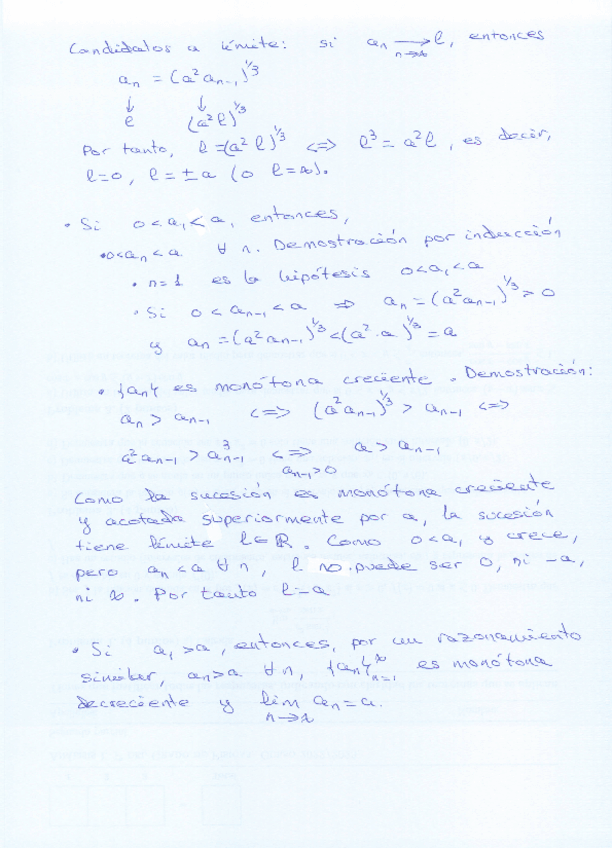 Candidatos a límite: si aₙ ⟶ l, entonces
n→∞
aₙ = (a² aₙ₋₁)^{1/3}
↓ ↓
l (a² l)^{1/3}
Por tanto, l = (a² l)^{1/3} <=> l³ = a² l, es decir,
l=0, l = ± a (o l=∞).
• Si 0 < a₁ < a, entonces,
• 0<aₙ < a ∀ n. Demostración por inducción
• n=1 es la hipótesis 0<a₁<a
• Si 0 < aₙ₋₁ < a ⇒ aₙ = (a² aₙ₋₁)^{1/3} > 0
y aₙ = (a² aₙ₋₁)^{1/3} < (a² · a)^{1/3} = a
• {aₙ} es monótona creciente. Demostración:
aₙ > aₙ₋₁ <=> (a² aₙ₋₁)^{1/3} > aₙ₋₁ <=>
a² aₙ₋₁ > a³ₙ₋₁ <=> a > aₙ₋₁
aₙ₋₁>0
Como la sucesión es monótona creciente
y acotada superiormente por a, la sucesión
tiene límite l∈ℝ. Como 0<a₁ y crece,
pero aₙ < a ∀ n, l no puede ser 0, ni -a,
ni ∞. Por tanto l=a
• Si a₁ > a, entonces, por un razonamiento
similar, aₙ>a ∀ n, {aₙ}^∞_{n=1} es monótona
decreciente y lim aₙ = a.
n→∞